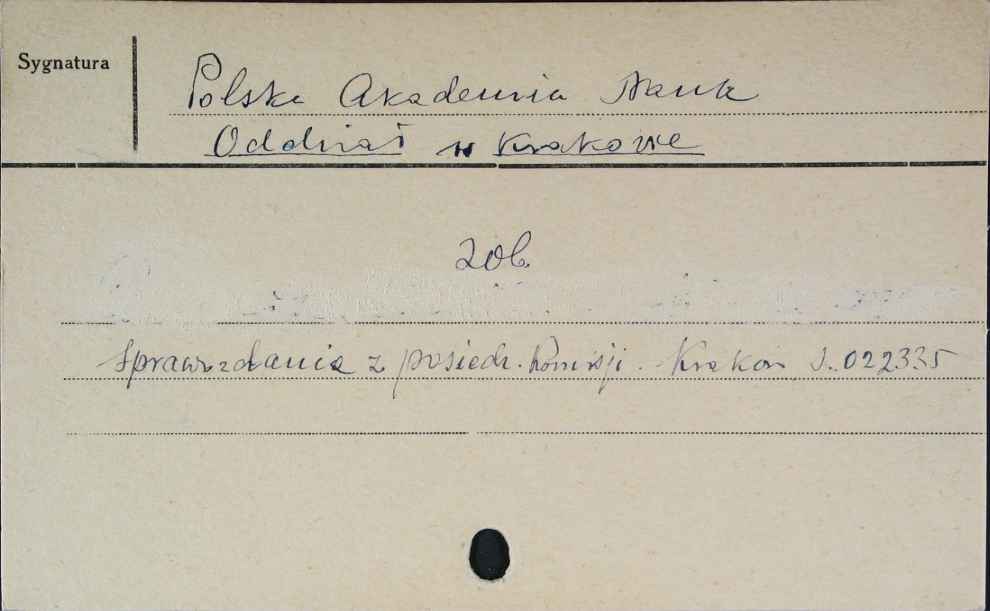 Sygnatura
Polska Akademia Nauk
Oddział w Krakowie
zob.
Sprawozdania z posiedz. Komisji. Kraków S.022335